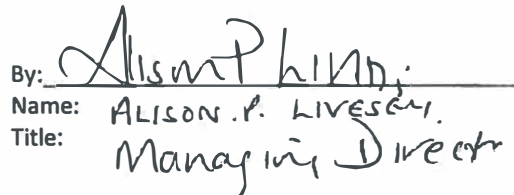 By: Alison P
Name: ALISON. P. LIVESEY.
Title: Managing Director